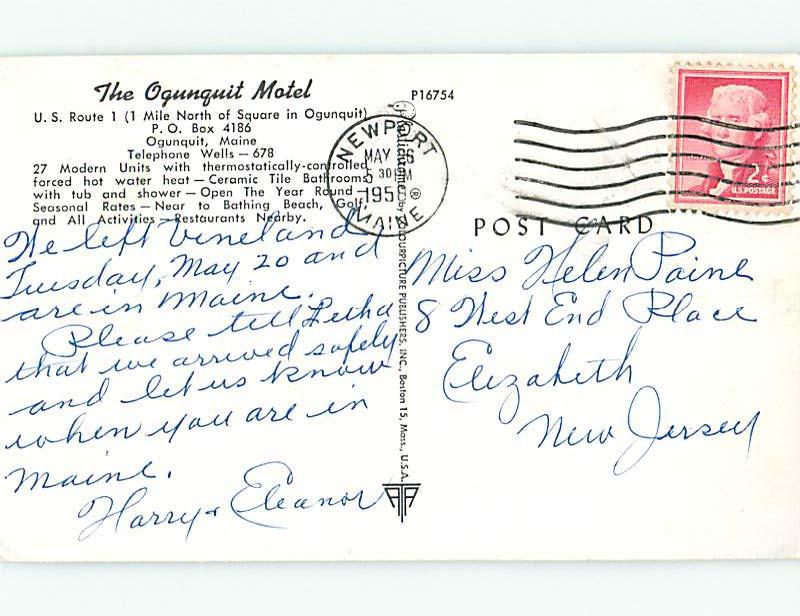 The Ogunquit Motel
U. S. Route 1 (1 Mile North of Square in Ogunquit)
P. O. Box 4186
Ogunquit, Maine
Telephone Wells – 678
27 Modern Units with thermostatically-controlled
forced hot water heat – Ceramic Tile Bathrooms
with tub and shower – Open The Year Round –
Seasonal Rates – Near to Bathing Beach, Golf
and All Activities – Restaurants Nearby.
We left Vineland
Tuesday, May 20 and
are in Maine.
Please tell Letha
that we arrived safely
and let us know
when you are in
Maine.
Harry + Eleanor
P16754
Plastichrome ® by COLOURPICTURE PUBLISHERS, INC., Boston 15, Mass., U.S.A.
NEWPORT
MAY 6
30 PM
195
MAINE
2¢
U.S. POSTAGE
POST CARD
Miss Helen Paine
8 West End Place
Elizabeth
New Jersey